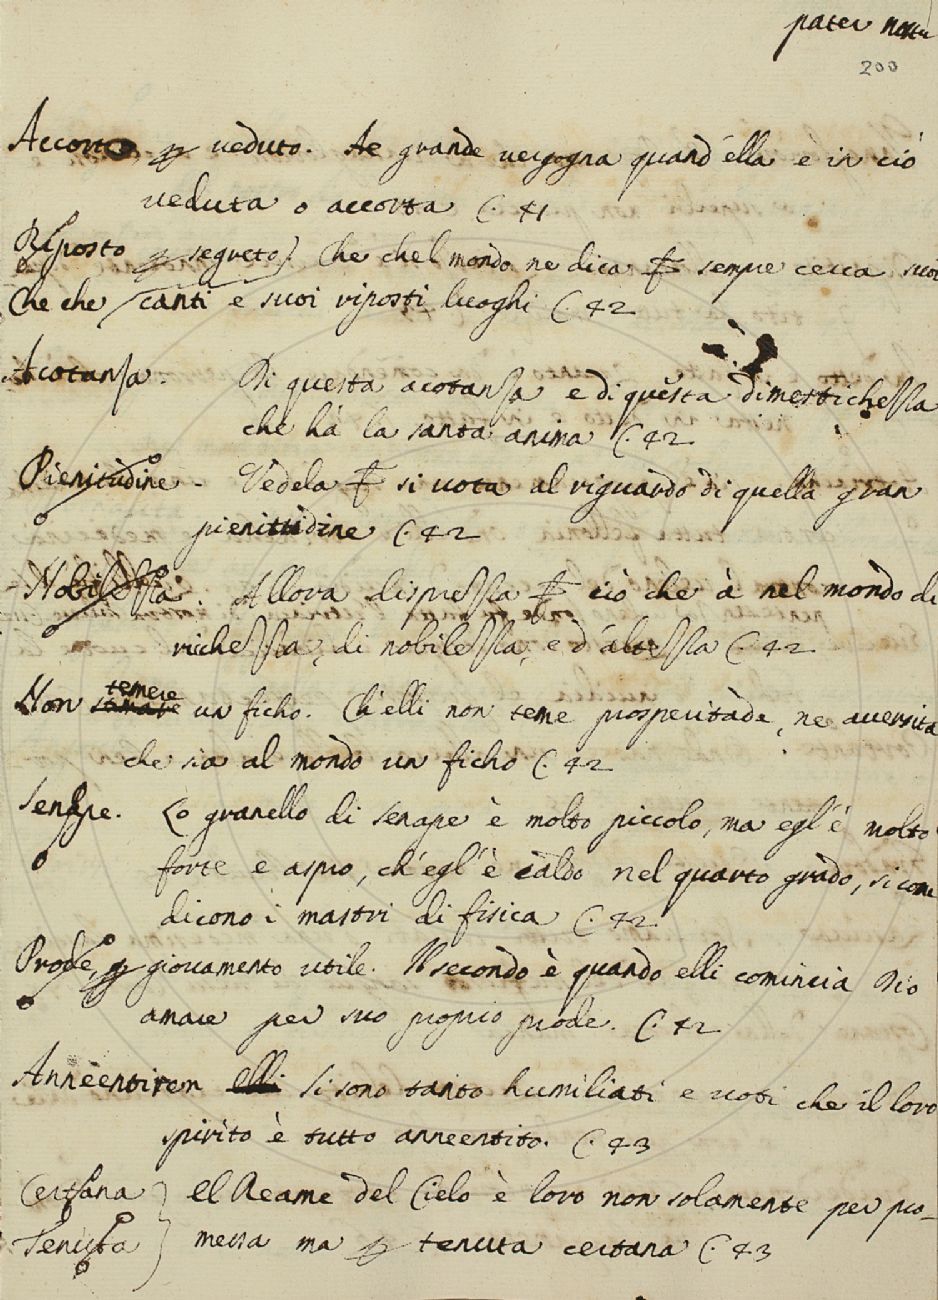 pater nostr
200
Accorto per veduto. Ae grande vergogna quand'ella è in ciò
veduta o accorta C. 41
Riposto per segreto) Che chel mondo ne dica sempre cerca suoi
Che che / canti e suoi riposti luoghi C. 42
Acotansa. Di questa acotansa e di questa dimestichessa
che hà la santa anima C. 42
Pienitudine. Vedela si vota al riguardo di quella gran
pienitudine C. 42
Nobilessa. Allora dispressa ciò che à nel mondo di
richessa, di nobilessa, e d'altessa C. 42
Non temere un ficho. Ch'elli non teme prosperitade, ne aversita
che sia al mondo un ficho C. 42
Senape. Lo granello di senape è molto piccolo, ma egl'è molto
forte e aspro, ch'egl'è caldo nel quarto grado, si come
dicono i mastri di fisica C. 42.
Prode, per giovamento utile. Il secondo è quando elli comincia Dio
amare per suo proprio prode. C. 42
Anneentire si sono tanto humiliati e voti che il loro
spirito è tutto anneentito. C. 43
Certana } el Reame del Cielo è loro non solamente per pro-
Tenuta } messa ma per tenuta certana C. 43